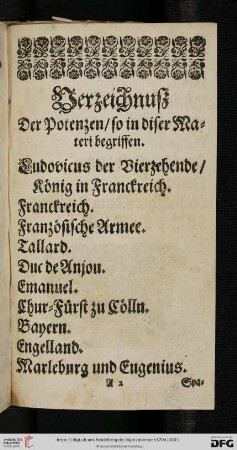 Verzeichnuß
Der Potenzen/ so in diser Ma-
teri begriffen.
Ludovicus der Vierzehende/
König in Franckreich.
Franckreich.
Französische Armee.
Tallard.
Duc de Anjou.
Emanuel.
Chur-Fürst zu Cölln.
Bayern.
Engelland.
Marleburg und Eugenius.
A 2
Spa-